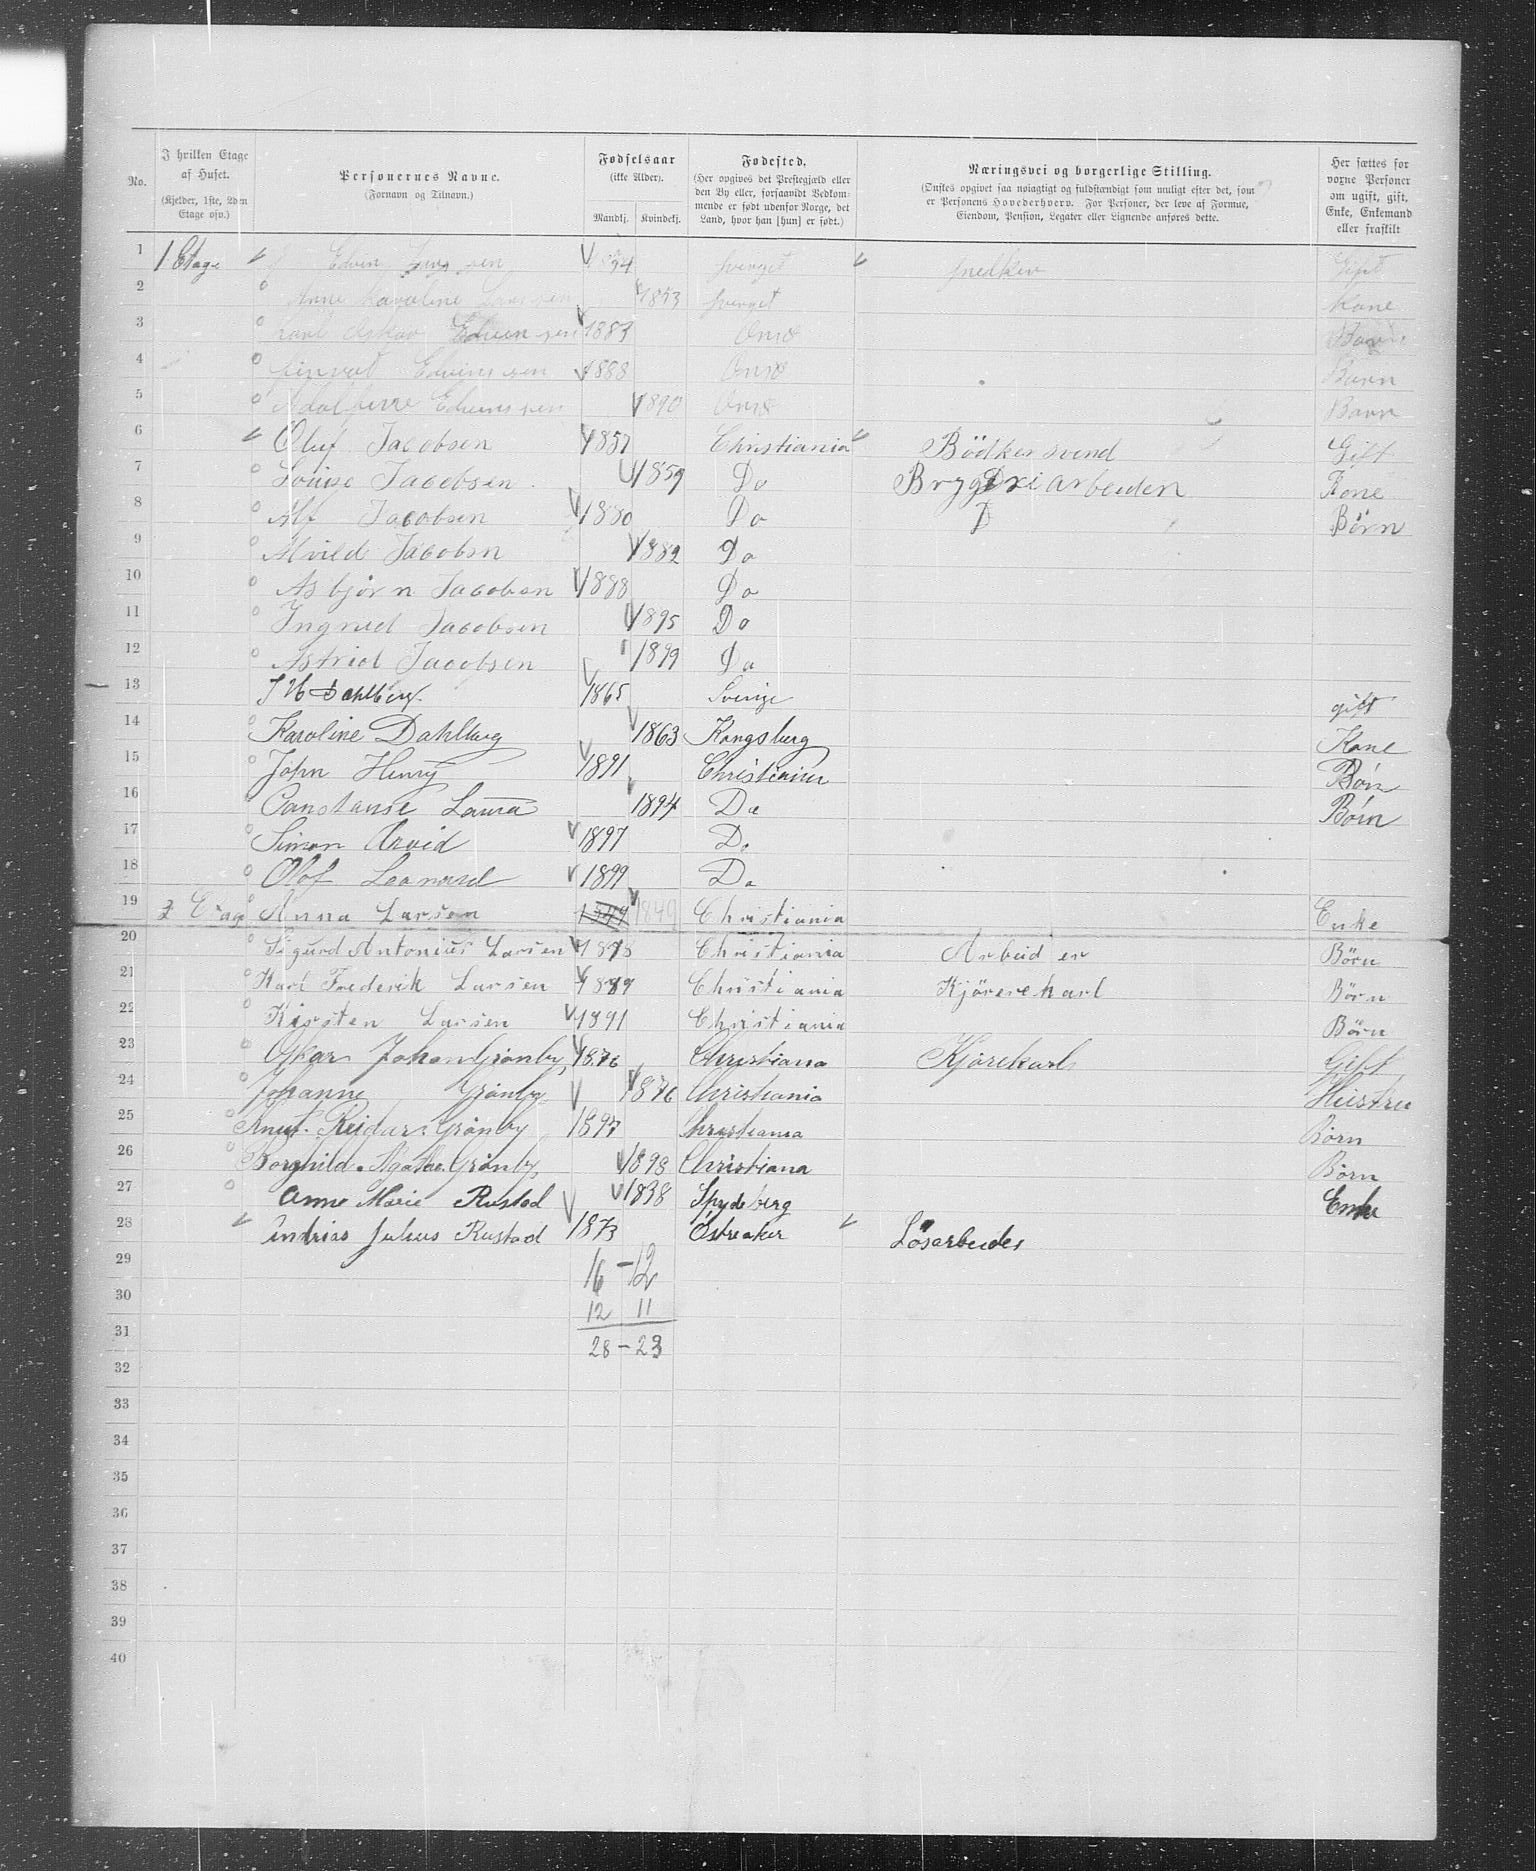 No.
I hvilken Etage af Huset.
(Kjelder, 1ste, 2den Etage osv.)
Personernes Navne.
(Fornavn og Tilnavn.)
Fødselsaar
(ikke Alder).
Mandkj. Kvindekj.
Fødested.
(Her opgives det Prestegjæld eller
den By eller, forsaavidt Vedkom-
mende er født udenfor Norge, det
Land, hvor han [hun] er født.)
Næringsvei og borgerlige Stilling.
(Ønskes opgivet saa nøiagtigt og fuldstændigt som muligt efter det, som
er Personens Hovederhverv. For Personer, der leve af Formue,
Eiendom, Pension, Legater eller Lignende anføres dette.
Her sættes for
voxne Personer
om ugift, gift,
Enke, Enkemand
eller fraskilt
1 1 Etage Edvin 54 sverget snedker Gift
2 Anne Karoline Larssen 1853 sverget Kone
3 Karl Oskar Edvinssen 1887 Onsø Barn
4 Edvinssen 1888 Onsø Barn
5 Edvinssen 1890 Onsø Barn
6 Oluf Jacobsen 1857 Christiania Bödkersvend Gift
7 Louise Jacobsen 1859 Do Bryggeriarbeiden Kone
8 Alf Jacobsen 1880 Do D Börn
9 Alvild Jacobsn 1882 Do
10 Asbjörn Jacobsen 1888 Do
11 Ingrid Jacobsen 1895 Do
12 Astrid Jacobsen 1899 Do
13 J H Dahlberg. 1865 Sverige gift
14 Karoline Dahlberg 1863 Kongsberg Kone
15 John Henry 1891 Christiania Børn
16 Constanse Laura 1894 Do Børn
17 Simon Arvid 1897 Do
18 Olof Leonard 1899 Do
19 2 Etage Anna Larsen 1849 1849 Christiania Enke
20 Sigurd Antonius Larsen 1878 Christiania Arbeider Börn
21 Karl Frederik Larsen 1889 Christiania Kjörerekarl Börn
22 Kirsten Larsen 1891 Christiania Börn
23 Oskar Johan Grønby 1876 Christiana Kjörekarl Gift
24 Johanne Grønby 1876 Christiania Hustru
25 Knut Reidar Grønby 1897 Christiania Börn
26 Borghild Agathe Grønby 1898 Christiana Börn
27 Anne Marie Rustad 1838 Spydeberg Enke
28 Andrias Julius Rustad 1873 Østreaker Løsarbeider
29 16 - 12
30 12 11
31 28 - 23
32
33
34
35
36
37
38
39
40